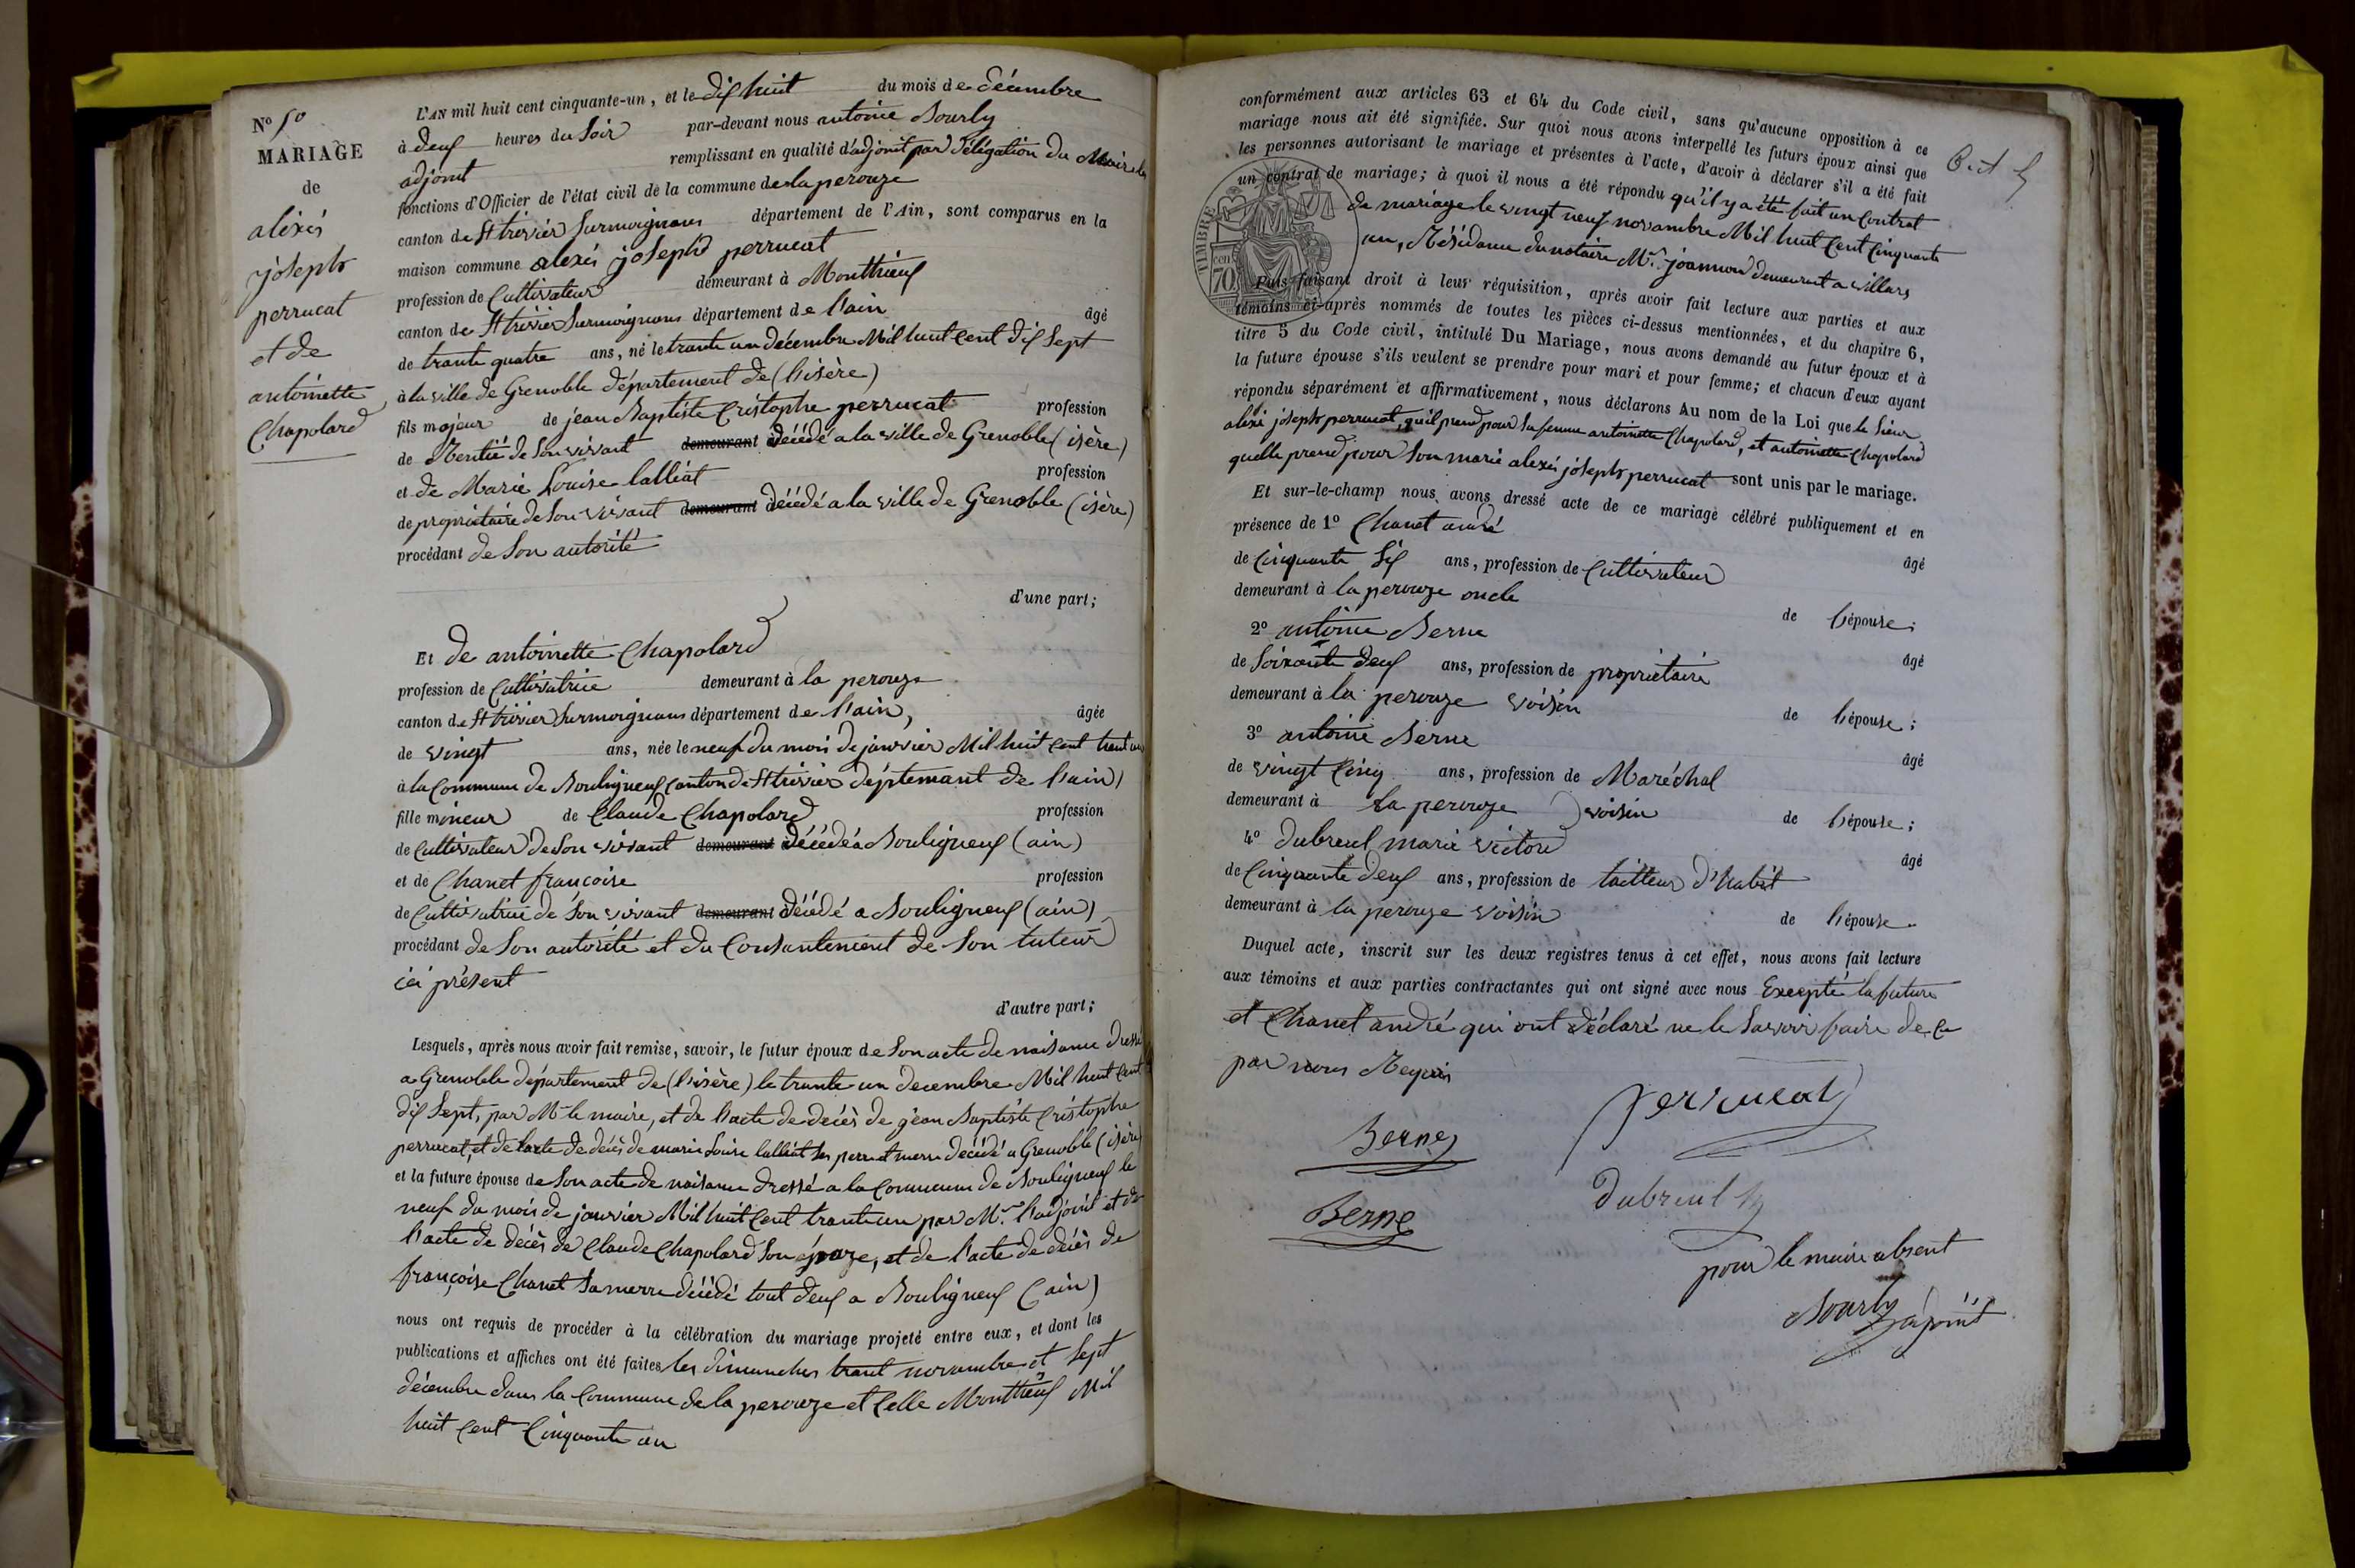 N° 10
MARIAGE
de
alèxis
joseph
perrucat
et de
antoinette
Chapolard
L'AN mil huit cent cinquante-un, et le dix huit du mois de décembre
à deux heures du soir par-devant nous antoine Bourly
adjoint remplissant en qualité d'adjoint par délégation du Maire les
fonctions d'Officier de l'état civil de la commune de la perouze
canton de St trivier surmoignans département de l'Ain, sont comparus en la
maison commune alexis joseph perrucat
profession de Cultivateur demeurant à Monthieux
canton de St trivier Surmoignans département de l'ain âgé
de trante quatre ans, né le trante un décembre Mil huit Cent dix sept
à la ville de Grenoble département de (l'isère)
fils majeur de jean Baptiste Cristophe perrucat profession
de Rentié de Son vivant demeurant décédé a la ville de Grenoble (isère)
et de Marie Louise lalliat profession
de propriétaire de Son vivant demeurant décédé a la ville de Grenoble (isère)
procédant de Son autorité
d'une part;
Et de antoinette Chapolard
profession de Cultivatrice demeurant à la perouze
canton de St trivier Surmoignans département de l'ain, âgée
de vingt ans, née le neuf du mois de janvier Mil huit Cent trant un
à la Commune de Bouligneux Canton de St trivier déptemant de l'ain)
fille mineur de Claude Chapolard profession
de Cultivateur de Son vivant demeurant décédé à Bouligneux (ain)
et de Chanet françoise profession
de Cultivatrice de Son vivant demeurant décédé a Bouligneux (ain)
procédant de Son autorité et du Consantement de Son tuteur
ici présent
d'autre part;
Lesquels, après nous avoir fait remise, savoir, le futur époux de Son acte de naisance dressé
a Grenoble département de (l'isère) le trante un decembre Mil huit Cent
dix Sept, par Mr le maire, et de l'acte de décès de géan Baptiste Cristophe
perrucat, et de l'acte de décès de marie Louise lalliat ses perre et merre décédé a Grenoble (isère)
et la future épouse de Son acte de naisance dressé a la Commune de Bouligneux le
neuf du mois de janvier Mil huit Cent trante un par Mr. l'adjoint et de
l'acte de décès de Claude Chapolard Son, et de l'acte de décès de
françoise Chanet Sa merre décédé tout deux a Bouligneux (ain)
nous ont requis de procéder à la célébration du mariage projeté entre eux, et dont les
publications et affiches ont été faites les dimanches trant novambre et Sept
décembre dans la Commune de la perouze et Celle Monthieux Mil
huit Cent Cinquante un
conformément aux articles 63 et 64 du Code civil, sans qu'aucune opposition à ce
mariage nous ait été signifiée. Sur quoi nous avons interpellé les futurs époux ainsi que
les personnes autorisant le mariage et présentes à l'acte, d'avoir à déclarer s'il a été fait
un contrat de mariage; à quoi il nous a été répondu qu'il y a été fait un Contrat
de mariage le vingt neuf novambre Mil huit Cent Cinquante
un, Résidance du notaire Mr. joannon demeurant a villars
TIMBRE
70
Puis faisant droit à leur réquisition, après avoir fait lecture aux parties et aux
témoins ci-après nommés de toutes les pièces ci-dessus mentionnées, et du chapitre 6,
titre 5 du Code civil, intitulé Du Mariage, nous avons demandé au futur époux et à
la future épouse s'ils veulent se prendre pour mari et pour femme; et chacun d'eux ayant
répondu séparément et affirmativement, nous déclarons Au nom de la Loi que le Sieur
alexi joseph perrucat, qu'il prend pour Sa femme antoinette Chapolard, et antoinette Chapolard
quelle prend pour Son marie alexis joseph perrucat sont unis par le mariage.
Et sur-le-champ nous avons dressé acte de ce mariage célébré publiquement et en
présence de 1° Chanet andré
de Cinquante Six ans, profession de Cultivateur âgé
demeurant à la perouze oncle de l'épouse;
2° antoine Berne
de Soixante deux ans, profession de propriétaire âgé
demeurant à la perouze voisin de l'épouse;
3° antoine Berne
de vingt Cinq ans, profession de Maréchal âgé
demeurant à la perouze voisin de l'épouse;
4° dubreul marie victor
de Cinquante deux ans, profession de tailleur d'habit âgé
demeurant à la perouze voisin de l'épouse
Duquel acte, inscrit sur les deux registres tenus à cet effet, nous avons fait lecture
aux témoins et aux parties contractantes qui ont signé avec nous Excepté la future
et Chanet andré qui ont déclaré ne le Savoir faire de Ce
par nous Requis
Berne
perrucat
Berne
dubreul
pour le maire absent
Bourly
adjoint